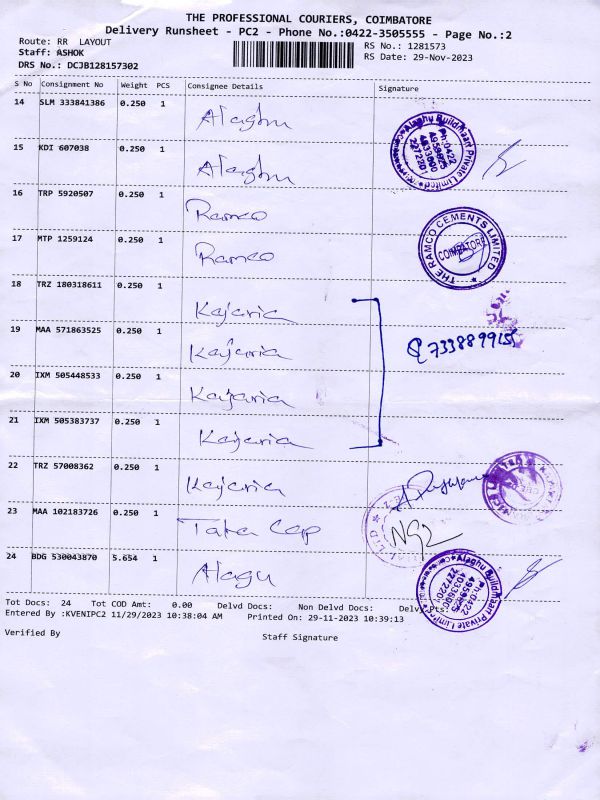 THE PROFESSIONAL COURIERS, COIMBATORE
Delivery Runsheet - PC2 - Phone No.:0422-3505555 - Page No.:2
Route: RR LAYOUT
RS No.: 1281573
Staff: ASHOK
RS Date: 29-Nov-2023
DRS No.: DCJB128157302
S No Consignment No Weight PCS Consignee Details Signature
14 SLM 333841386 0.250 1
Alaghu
15 KDI 607038 0.250 1
Alaghu
Alaghu Buildmaart Private Limited
Ph:0422
16 TRP 5920507 0.250 1
Ramco
17 MTP 1259124 0.250 1
Ramco
THE RAMCO CEMENTS LIMITED
COIMBATORE
18 TRZ 180318611 0.250 1
Kajaria
19 MAA 571863525 0.250 1
Kajaria
20 IXM 505448533 0.250 1
Kajaria
21 IXM 505383737 0.250 1
Kajaria
22 TRZ 57008362 0.250 1
Kajaria
23 MAA 102183726 0.250 1
Tata Cap
24 BDG 530043870 5.654 1
Alagu
Alaghu Buildmaart Private Limited
Ph:0422
Tot Docs: 24 Tot COD Amt: 0.00 Delvd Docs: Non Delvd Docs:
Entered By :KVENIPC2 11/29/2023 10:38:04 AM Printed On: 29-11-2023 10:39:13
Verified By Staff Signature